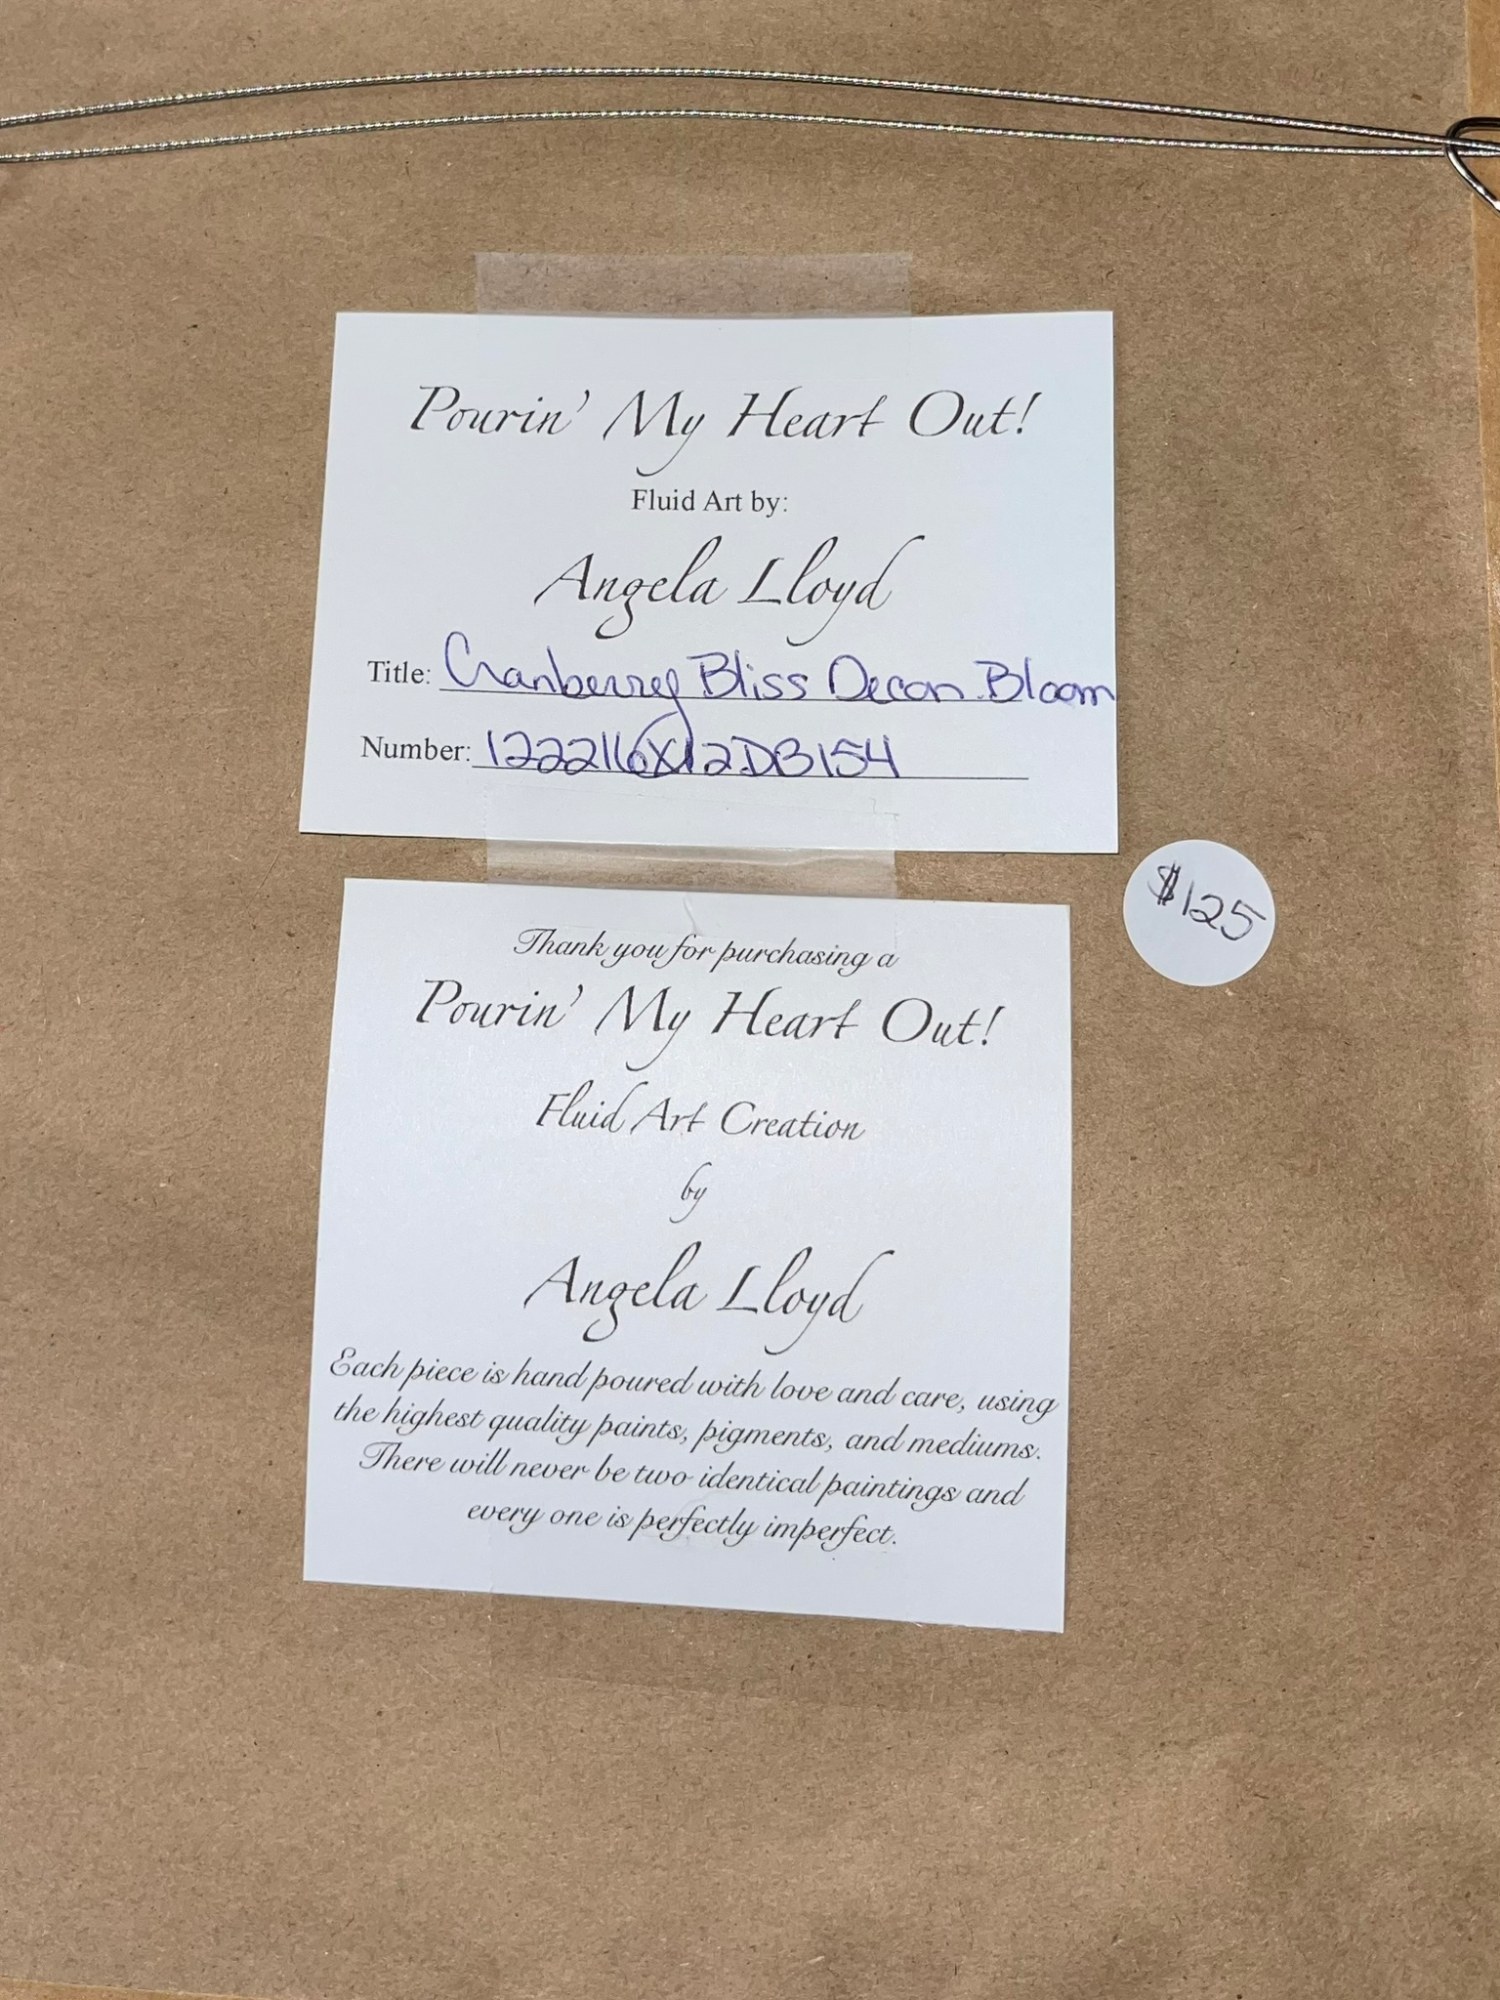 Pourin' My Heart Out!
Fluid Art by:
Angela Lloyd
Title: Cranberry Bliss Decon Bloom
Number: 122216X12DB154
$125
Thank you for purchasing a
Pourin' My Heart Out!
Fluid Art Creation
by
Angela Lloyd
Each piece is hand poured with love and care, using
the highest quality paints, pigments, and mediums.
There will never be two identical paintings and
every one is perfectly imperfect.